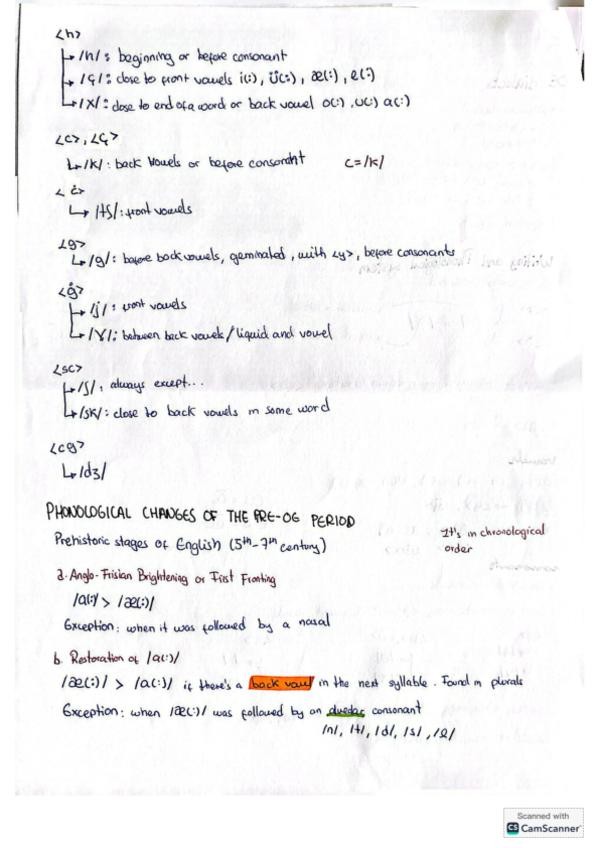 <h>
↳ /h/: beginning or before consonant
↳ /ç/: close to front vowels i(:), ü(:), æ(:), e(:)
↳ /X/: close to end of a word or back vowel o(:), u(:) a(:)
<c>, <ç>
↳ /k/: back vowels or before consonant c=/k/
<ċ>
↳ /tʃ/: front vowels
<g>
↳ /g/: before back vowels, geminated, with <y>, before consonants
<ġ>
↳ /j/: front vowels
↳ /Ɣ/: between back vowels/liquid and vowel
<sc>
↳ /ʃ/: always except...
↳ /sk/: close to back vowels in some word
<cg>
↳ /dʒ/
PHONOLOGICAL CHANGES OF THE PRE-OG PERIOD
Prehistoric stages of English (5th-7th century) It's in chronological
order
a. Anglo-Frisian Brightening or First Fronting
/a(:)/ > /æ(:)/
Exception: when it was followed by a nasal
b. Restoration of /a(:)/
/æ(:)/ > /a(:)/ if there's a back vowel in the next syllable. Found in plurals
Exception: when /æ(:)/ was followed by an consonant
/n/, /t/, /d/, /s/, /l/
Scanned with
CS CamScanner